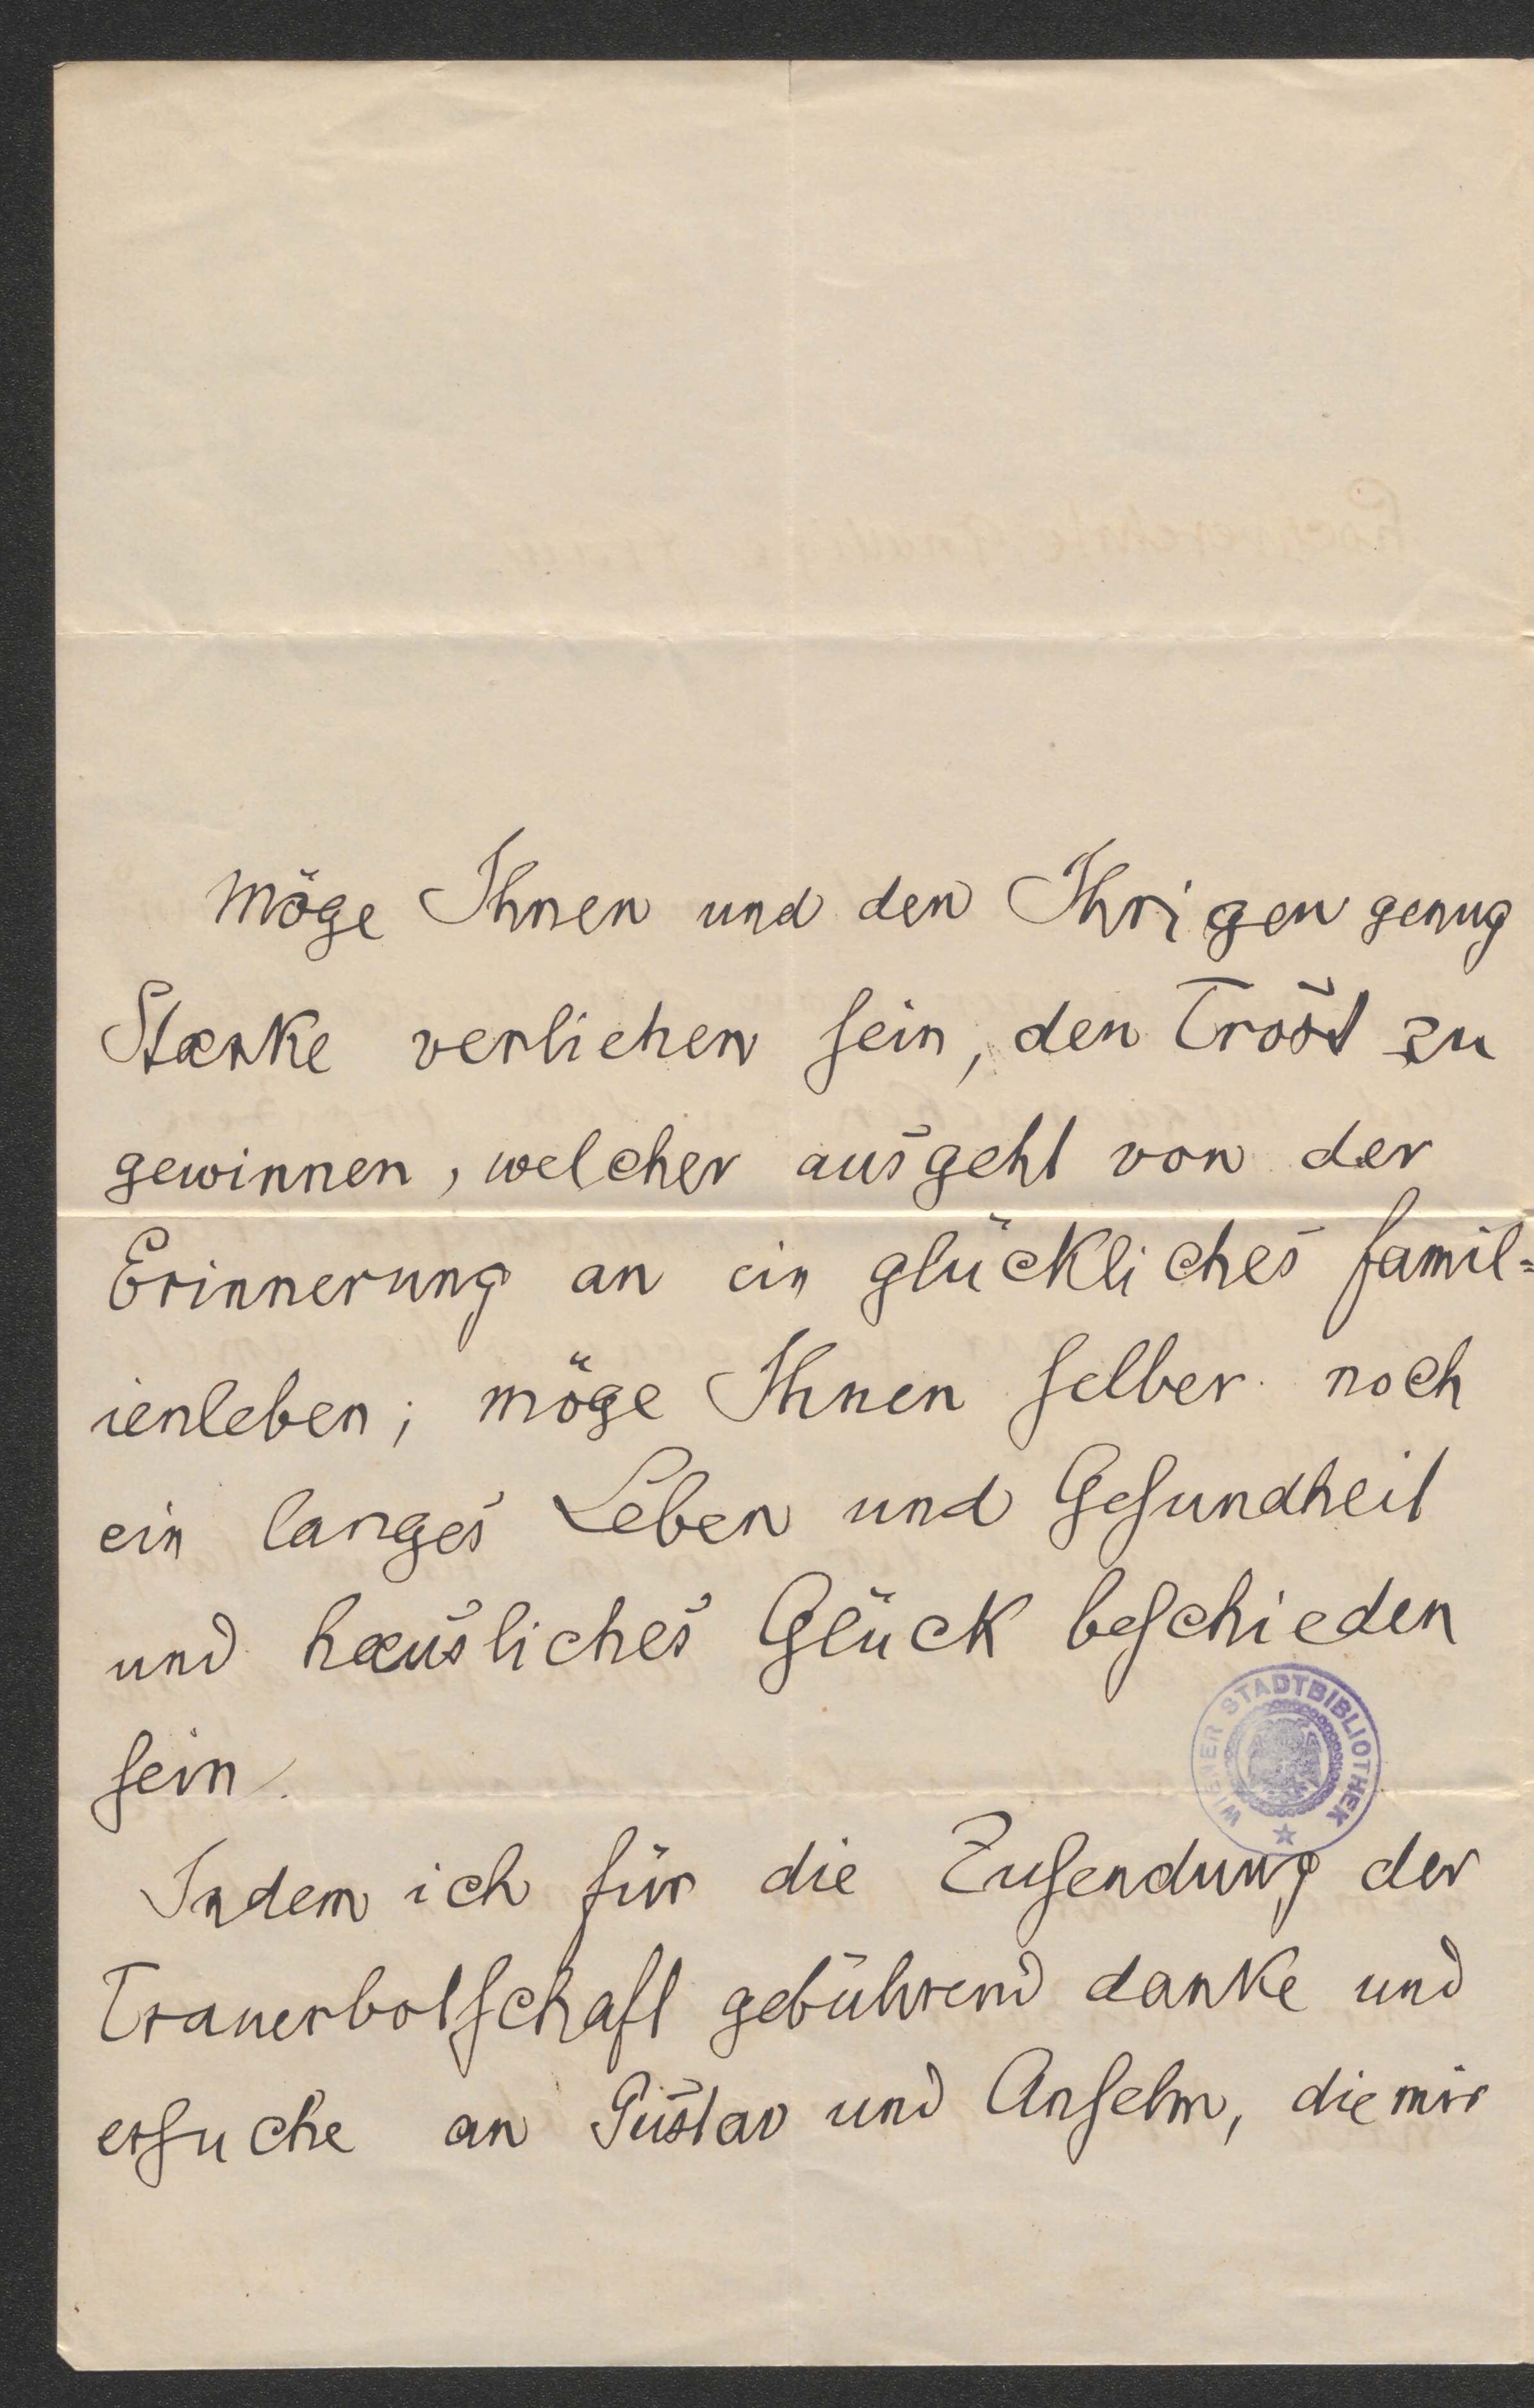 Möge Ihnen und den Ihrigen genug
Stærke verliehen sein, den Trost zu
gewinnen, welcher ausgeht von der
Erinnerung an ein glückliches Famil=
ienleben; möge Ihnen selber noch
ein langes Leben und Gesundheit
und hæusliches Glück beschieden
sein.
WIENER STADTBIBLIOTHEK
Indem ich für die Zusendung der
Trauerbotschaft gebührend danke und
ersuche an Gustav und Anselm, die mir